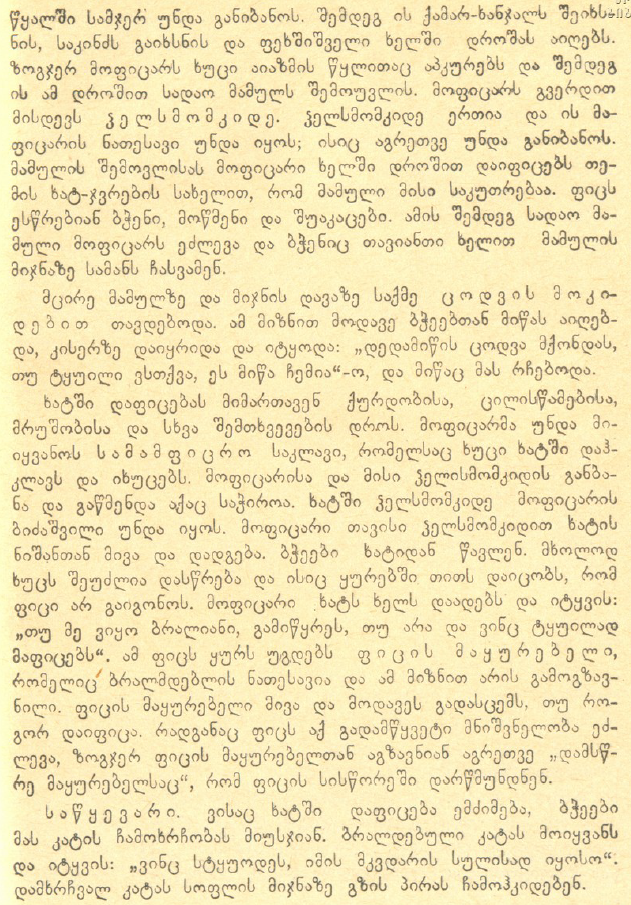 წყალში სამჯერ უნდა განიბანოს. შემდეგ ის ქამარ-ხანჯალს შეიხს-
ნის, საკინძს გაიხსნის და ფეხშიშველი ხელში დროშას აიღებს.
ზოგჯერ მოფიცარს ხუცი აიაზმის წყლითაც აპკურებს და შემდეგ
ის ამ დროშით სადაო მამულს შემოუვლის. მოფიცარს გვერდით
მისდევს ჴ ე ლ ს მ ო მ კ ი დ ე. ჴელსმომკიდე ერთია და ის მო-
ფიცარის ნათესავი უნდა იყოს; ისიც აგრეთვე უნდა განიბანოს.
მამულის შემოვლისას მოფიცარი ხელში დროშით დაიფიცებს თე-
მის ხატ-ჯვრების სახელით, რომ მამული მისი საკუთრებაა. ფიცს
ესწრებიან ბჭენი, მოწმენი და შუაკაცები. ამის შემდეგ სადაო მა-
მული მოფიცარს ეძლევა და ბჭენიც თავიანთი ხელით მამულის
მიჯნაზე სამანს ჩასვამენ.
მცირე მამულზე და მიჯნის დავაზე საქმე ც ო დ ვ ი ს მ ო კ ი-
დ ე ბ ი თ თავდებოდა. ამ მიზნით მოდავე ბჭეებთან მიწას აიღებ-
და, კისერზე დაიყრიდა და იტყოდა: „დედამიწის ცოდვა მქონდას,
თუ ტყუილი ვსთქვა, ეს მიწა ჩემია“-ო, და მიწაც მას რჩებოდა.
ხატში დაფიცებას მიმართავენ ქურდობისა, ცილისწამებისა,
მრუშობისა და სხვა შემთხვევების დროს. მოფიცარმა უნდა მი-
იყვანოს ს ა მ ა მ ფ ი ც რ ო საკლავი, რომელსაც ხუცი ხატში დაჰ-
კლავს და იხუცებს. მოფიცარისა და მისი ჴელისმომკიდის განბა-
ნა და გაწმენდა აქაც საჭიროა. ხატში ჴელსმომკიდე მოფიცარის
ბიძაშვილი უნდა იყოს. მოფიცარი თავისი ჴელსმომკიდით ხატის
ნიშანთან მივა და დადგება. ბჭეები ხატიდან წავლენ. მხოლოდ
ხუცს შეუძლია დასწრება და ისიც ყურებში თითს დაიცობს, რომ
ფიცი არ გაიგონოს. მოფიცარი ხატს ხელს დაადებს და იტყვის:
„თუ მე ვიყო ბრალიანი, გამიწყრეს, თუ არა და ვინც ტყუილად
მაფიცებს“. ამ ფიცს ყურს უგდებს ფ ი ც ი ს მ ა ყ უ რ ე ბ ე ლ ი,
რომელიც ბრალმდებლის ნათესავია და ამ მიზნით არის გამოგზავ-
ნილი. ფიცის მაყურებელი მივა და მოდავეს გადასცემს, თუ რო-
გორ დაიფიცა. რადგანაც ფიცს აქ გადამწყვეტი მნიშვნელობა ეძ-
ლევა, ზოგჯერ ფიცის მაყურებელთან აგზავნიან აგრეთვე „დამსწ-
რე მაყურებელსაც“, რომ ფიცის სისწორეში დარწმუნდნენ.
ს ა წ ყ ე ვ ა რ ი. ვისაც ხატში დაფიცება ემძიმება, ბჭეები
მას კატის ჩამოხრჩობას მიუსჯიან. ბრალდებული კატას მოიყვანს
და იტყვის: „ვინც სტყუოდეს, იმის მკვდარის სულისად იყოსო“.
დამხრჩვალ კატას სოფლის მიჯნაზე გზის პირას ჩამოჰკიდებენ.